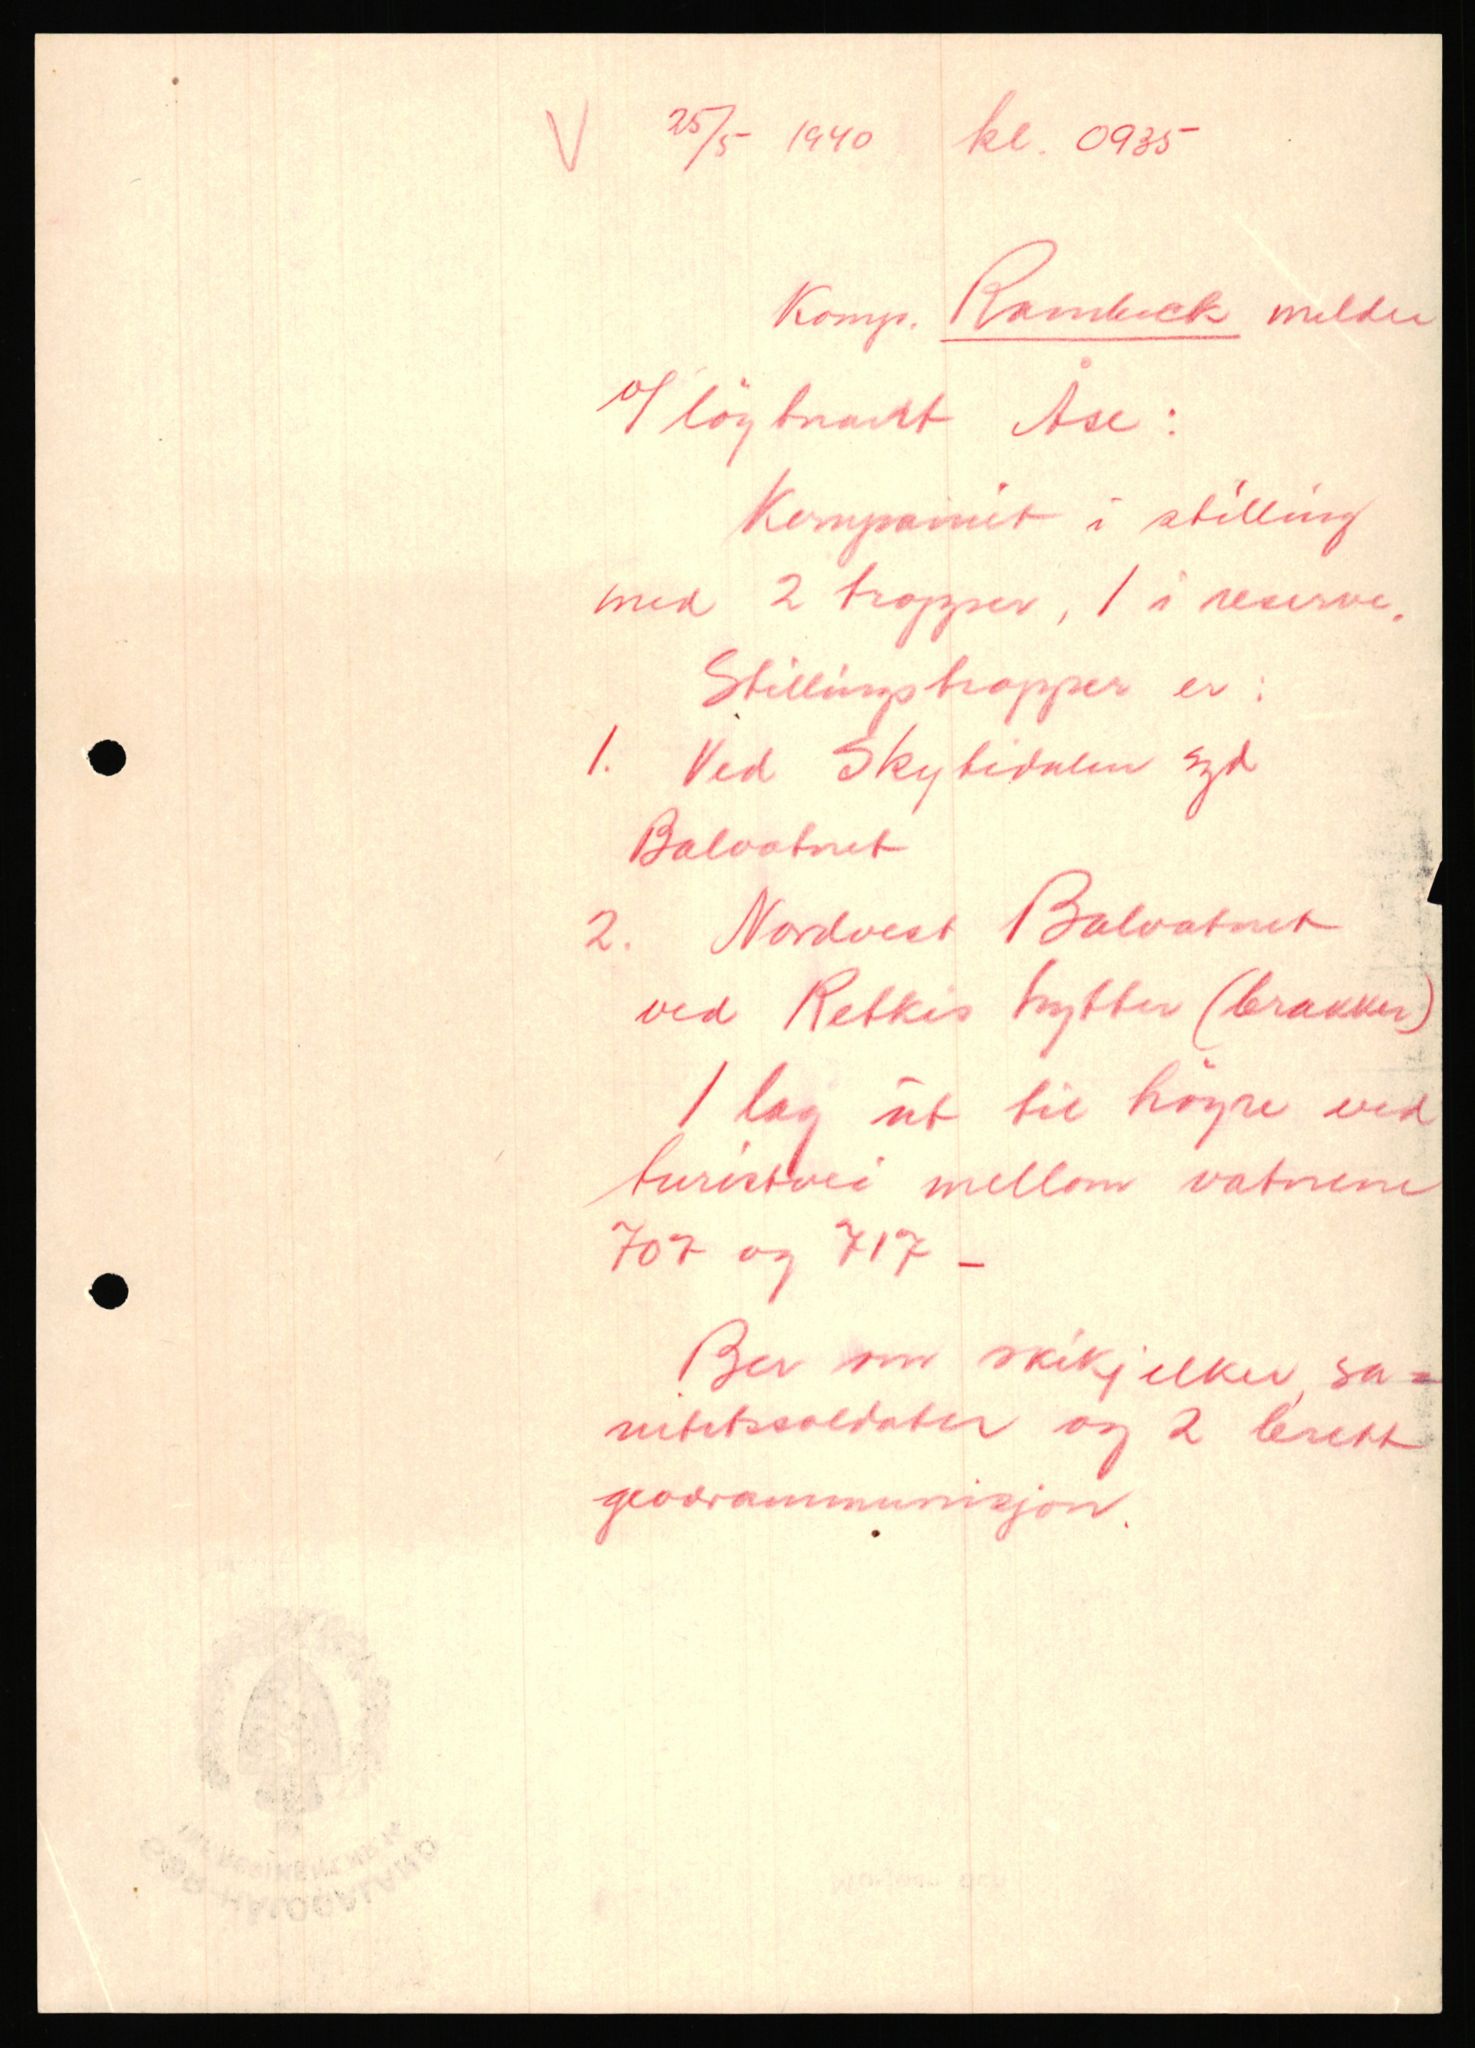 V 25/5 1940 kl. 0935
Komp. Rambeck melder
v/ löytnant Åse:
Kompaniet i stilling
med 2 tropper, 1 i reserve.
Stillingstropper er:
1. Ved Skytidalen syd
Balvatnet
2. Nordvest Balvatnet
ved Retkis hytter (brakker)
1 lag ut til högre ved
turistvei mellom vatnene
707 og 717 –
Ber om skikjelker, sa=
nitetssoldater og 2 brett
geværammunisjon.
INF REGIMENT NR 14
SØR-HÅLOGALAND
Mosjøen den